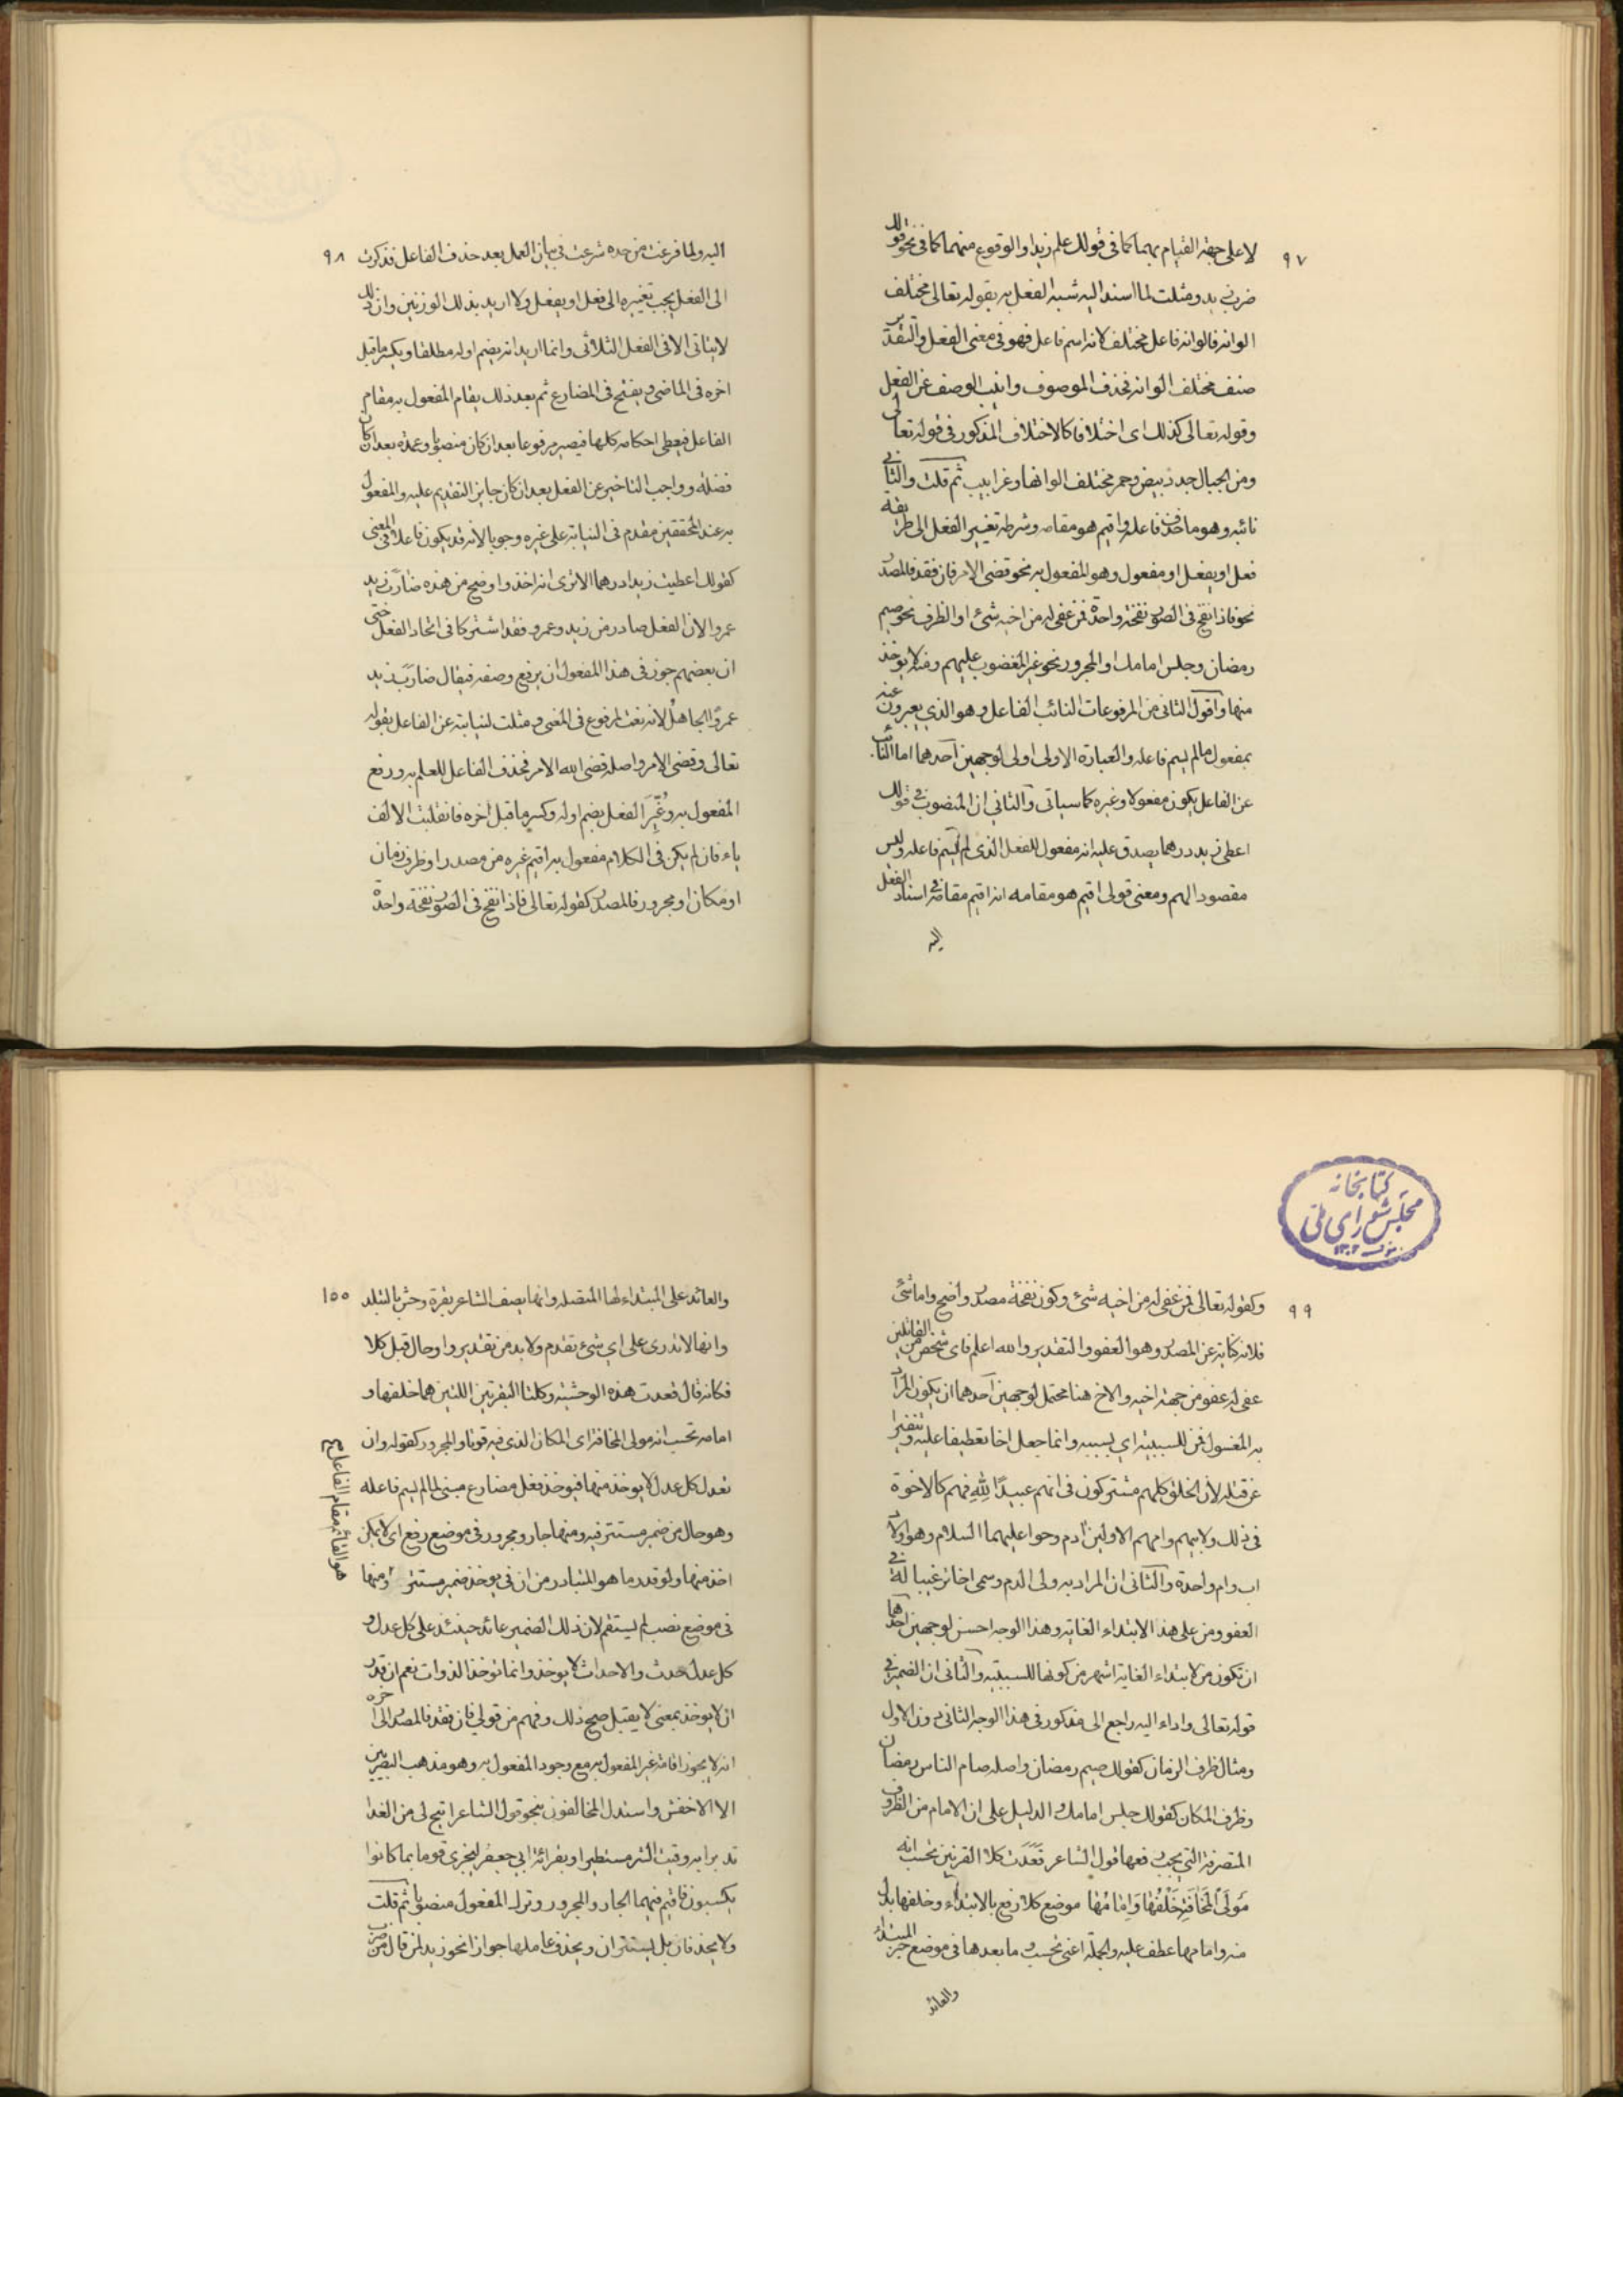 ٩٧
لا على جهة القيام بهما كما في قولك علم زيد او الوقوع منهما كما في نحو قولك
ضرب زيد ومثلت لما اسند اليه شبه الفعل به بقوله تعالى مختلف
الوانه فالوانه فاعل مختلف لانه اسم فاعل فهو في معنى الفعل والتقدير
صنف مختلف الوانه فحذف الموصوف وانيب الوصف عن الفعل
وقوله تعالى كذلك اى اختلافا كالاختلاف المذكور في قوله تعالى
ومن الجبال جدد بيض وحمر مختلف الوانها وغرابيب ثم قلت والثاني
نائبه وهو ما حذف فاعله واقيم هو مقامه وشرطه تغيير الفعل الى طريقه
فعل او يفعل او مفعول وهو المفعول به نحو قضى الامر فان فقد فالمصدر
نحو فاذا نفخ في الصور نفخة واحدة فمن عفى له من اخيه شئ او الظرف نحو صيم
رمضان وجلس امامك او المجرور نحو غير المغضوب عليهم ومنه لا يوخذ
منها واقول الثاني من المرفوعات النائب الفاعل وهو الذي يعبرون عنه
بمفعول ما لم يسم فاعله والعبارة الاولى اولى لوجهين احدهما ان النائب
عن الفاعل يكون مفعولا وغيره كما سياتى والثاني ان المنصوب في قولك
اعطى زيد درهما يصدق عليه انه مفعول للفعل الذى لم يسم فاعله وليس
مقصود الهم ومعنى قولى اقيم هو مقامه انه اقيم مقامه في اسناد الفعل
اليه
٩٨
اليه ولما فرغت من حده شرعت في بيان العمل بعد حذف الفاعل فذكرت
الى الفعل يجب تغييره الى فعل او يفعل ولا اريد بذلك الوزنين وان ذلك
لايتاتى الا في الفعل الثلاثى وانما اريد انه يضم اوله مطلقا ويكسر ما قبل
اخره في الماضى ويفتح في المضارع ثم بعد ذلك يقام المفعول به مقام
الفاعل فيعطى احكامه كلها فيصير مرفوعا بعد ان كان منصوبا وعمدة بعد ان كان
فضلة وواجب التاخير عن الفعل بعد ان كان جايز التقديم عليه والمفعول
به عند المحققين مقدم في النيابة على غيره وجوبا لانه قد يكون فاعلا في المعنى
كقولك اعطيت زيدا درهما الاترى انه اخذ واوضح من هذه ضارب زيد
عمروا لان الفعل صادر من زيد وعمرو فقد اشتركا في اتحاد الفعل حتى
ان بعضهم جوز في هذا المفعول ان يرفع وصفه فيقال ضارب زيد
عمروًا الجاهلُ لانه نعت لمرفوع في المعنى ومثلت لنيابته عن الفاعل بقوله
تعالى وقضى الامر واصله قضى الله الامر فحذف الفاعل للعلم به ورفع
المفعول به وغُيِّرَ الفعل بضم اوله وكسر ما قبل اخره فانقلبت الالف
ياء فان لم يكن في الكلام مفعول به اقيم غيره من مصدر او ظرف زمان
او مكان او مجرور فالمصدر كقوله تعالى فاذا نفخ في الصور نفخة واحدة
كتابخانه
مجلس شوراى ملى
٩٩
وكقوله تعالى فمن عفى له من اخيه شئ وكون نفخة مصدر واضح واما شئ
فلانه كناية عن المصدر وهو العفو والتقدير والله اعلم فاى شخص من القائلين
عفى له عفو من جهة اخيه والاخ هنا محتمل لوجهين احدهما ان يكون المراد
به المغسول فمن للسببية اي بسببه وانما جعل اخا تعطيفا عليه وتنفيرا
عن قتله لان الخلق كلهم مشتركون في انهم عبيدًا للهِ فهم كالاخوة
في ذلك ولابيهم وامهم الاولين ادم وحوا عليهما السلام وهو اولاد
اب وام واحدة والثاني ان المراد به ولى الدم وسمى اخا ترغيبا له في
العفو ومن على هذا الابتداء الغاية وهذا الوجه احسن لوجهين احدهما
ان تكون من لابتداء الغاية اشهر من كونها للسببية والثانى ان الضمير في
قوله تعالى واداء اليه راجع الى مذكور في هذا الوجه الثانى دون الاول
ومثال ظرف الزمان كقولك صيم رمضان واصله صام الناس رمضان
وظرف المكان كقولك جلس امامك والدليل على ان الامام من الظروف
المتصرفة التي يجب رفعها قول الشاعر فَغَدَت كلا الفرجين تحسب انه
مَولَى المَخَافَةِ خَلْفُها وَاِمَامُها موضع كلا رفع بالابتداء وخلفها بدل
منه وامامها عطف عليه والجملة اعنى تحسب وما بعدها في موضع خبر المبتداء
والعائد
١٥٥
والعائد على المبتداء لها المتصله وانها يصف الشاعر بقرة وحش بالتبلد
وانها لاتدرى على اي شئ تقدم ولابد من تقدير واو حال قبل كلا
فكانه قال فغدت هذه الوحشية وكلتا البقرتين اللتين هما خلفها و
امامه تحسب انه مولى المخافة اى المكان الذى فيه قوتا والمجرور كقوله وان
تعدل كل عدل لا يوخذ منها فيوخذ فعل مضارع مبنى لما لم يسم فاعله
وهو حال من ضمير مستتر فيه ومنها جار ومجرور في موضع رفع اى لا يكن
اخذ منها ولو قدر ما هو المتبادر من ان في يوخذ ضمير مستتر ومنها
في موضع نصب لم يستقم لان ذلك الضمير عائد حينئذ على كل عدل و
كل عدل حدث والاحداث لا يوخذ وانما توخذ الذوات نعم ان قدر
ان لا يوخذ بمعنى لا يقبل صح ذلك وفهم من قولى فان فقد فالمصدر الى اخره
انه لايجوز اقامة غير المفعول به مع وجود المفعول به وهو مذهب البصريين
الا الاخفش واستدل المخالفون بنحو قول الشاعر اتيح لى من العدا
نديرا به وقيت الشر مستطيرا وبقرائة ابي جعفر ليجزى قوما بما كانوا
يكسبون فاقيم فيهما الجار والمجرور وترك المفعول منصوبا ثم قلت
ولا يحذفان بل يستتران ويحذف عاملها جوازا نحو زيد لمن قال من ضرب
هو القائم مقام الفاعل صح